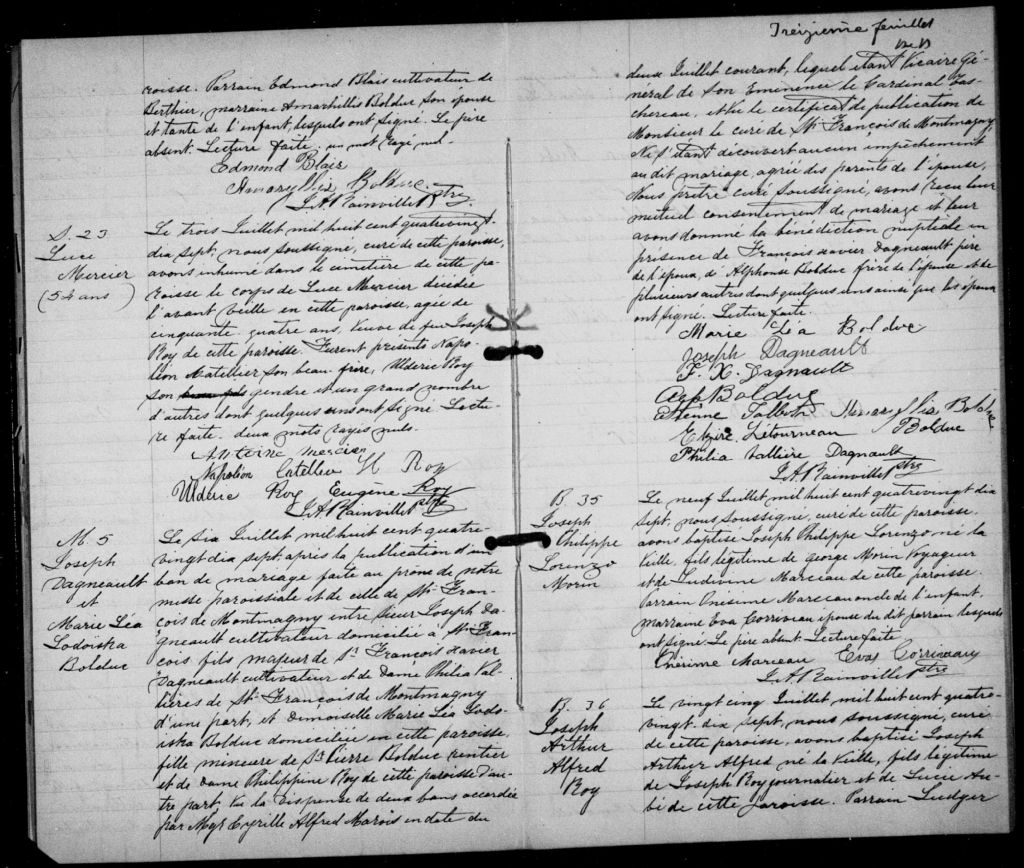 roisse. Parrain Edmond Blais cultivateur de
Berthier, marraine Amarhillis Bolduc son épouse
et tante de l'enfant, lesquels ont signé. Le père
absent. Lecture faite. un mot rayé nul.
Edmond Blais
Amaryllis Bolduc
J.A. Rainville Ptre
S. 23
Luce
Mercier
(54 ans)
Le trois Juillet mil huit cent quatrevingt
dix sept, nous soussigné, curé de cette paroisse,
avons inhumé dans le cimetiere de cette pa-
roisse le corps de Luce Mercier décédée
l'avant veille en cette paroisse, agée de
cinquante-quatre ans, veuve de feu Joseph
Roy de cette paroisse. Furent présents Napo-
léon Catellier son beau-frère, Uldéric Roy
son gendre et un grand nombre
d'autres dont quelques uns ont signé. Lectu-
re faite. deux mots rayés nuls.
Anterne Mercier
Napoléon Catellier H Roy
Uldéric Roy Eugène Roy
J.A. Rainville Ptre
M. 5
Joseph
Dagneault
et
Marie Léa
Lodoiska
Bolduc
Le six Juillet mil huit cent quatre-
vingt dix sept, après la publication d'un
ban de mariage faite au prone de notre
messe paroissiale et de celle de St Fran-
cois de Montmagny entre Sieur Joseph Da-
gneault cultivateur domicilié à St Fran-
cois fils majeur de Sr François Xavier
Dagneault cultivateur et de Dame Philia Val-
lières de St François de Montmagny
d'une part, et Demoiselle Marie Léa Lodo-
iska Bolduc domiciliée en cette paroisse,
fille mineure de Sr Pierre Bolduc rentier
et de Dame Philippine Roy de cette paroisse d'au-
tre part. Vu la dispense de deux bans accordée
par Mgr Cyrille Alfred Marois en date du
Treizième feuillet
deux Juillet courant, lequel étant Vicaire Gé-
néral de Son Eminence le Cardinal Tas-
chereau, et Vu le certificat de publication de
Monsieur le curé de St François de Montmagny
Ne s'étant découvert aucun empêchement
au dit mariage, agréé des parents de l'épouse,
Nous prêtre curé soussigné, avons reçu leur
mutuel consentement de mariage et leur
avons donné la bénédiction nuptiale en
présence de François Xavier Dagneault père
de l'époux, d'Alphonse Bolduc frère de l'épouse et de
plusieurs autres dont quelques uns ainsi que les époux
ont signé. Lecture faite.
Marie Léa Bolduc
Joseph Dagneault
F. X. Dagnault
Alp Bolduc
Etienne Talbot Amaryllis Bolduc
Elzire Létourneau Bolduc
Philia Vallière Dagneault
J.A. Rainville Ptre
B. 35
Joseph
Philippe
Lorenzo
Morin
Le neuf Juillet mil huit cent quatrevingt dix
sept, nous soussigné, curé de cette paroisse,
avons baptisé Joseph Philippe Lorenzo né la
veille, fils légitime de George Morin Voyageur
et de Ludivine Marceau de cette paroisse.
Parrain Onésime Marceau oncle de l'enfant,
marraine Eva Corriveau épouse du dit parrain lesquels
ont signé. Le père absent. Lecture faite
Onésime Marceau Eva Corriveau
J.A. Rainville Ptre
B. 36
Joseph
Arthur
Alfred
Roy
Le vingt cinq Juillet mil huit cent quatre-
vingt-dix sept, nous soussigné, curé
de cette paroisse, avons baptisé Joseph
Arthur Alfred né la Veille, fils légitime
de Joseph Roy journalier et de Lucie Au-
bé de cette paroisse. Parrain Ludger